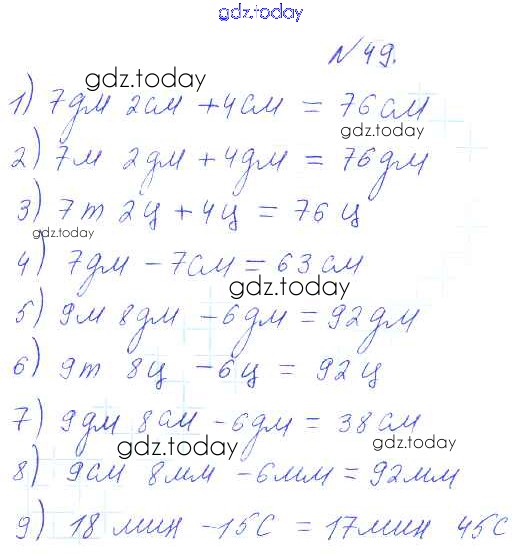 gdz.today
№49.
gdz.today
1) 7дм 2см + 4см = 76см
gdz.today
2) 7м 2дм + 4дм = 76дм
3) 7т 2ц + 4ц = 76ц
gdz.today
4) 7дм - 7см = 63см
gdz.today
5) 9м 8дм - 6дм = 92дм
6) 9т 8ц - 6ц = 92ц
7) 9дм 8см - 6дм = 38см
gdz.today
gdz.today
8) 9см 8мм - 6мм = 92мм
9) 18мин - 15с = 17мин 45с